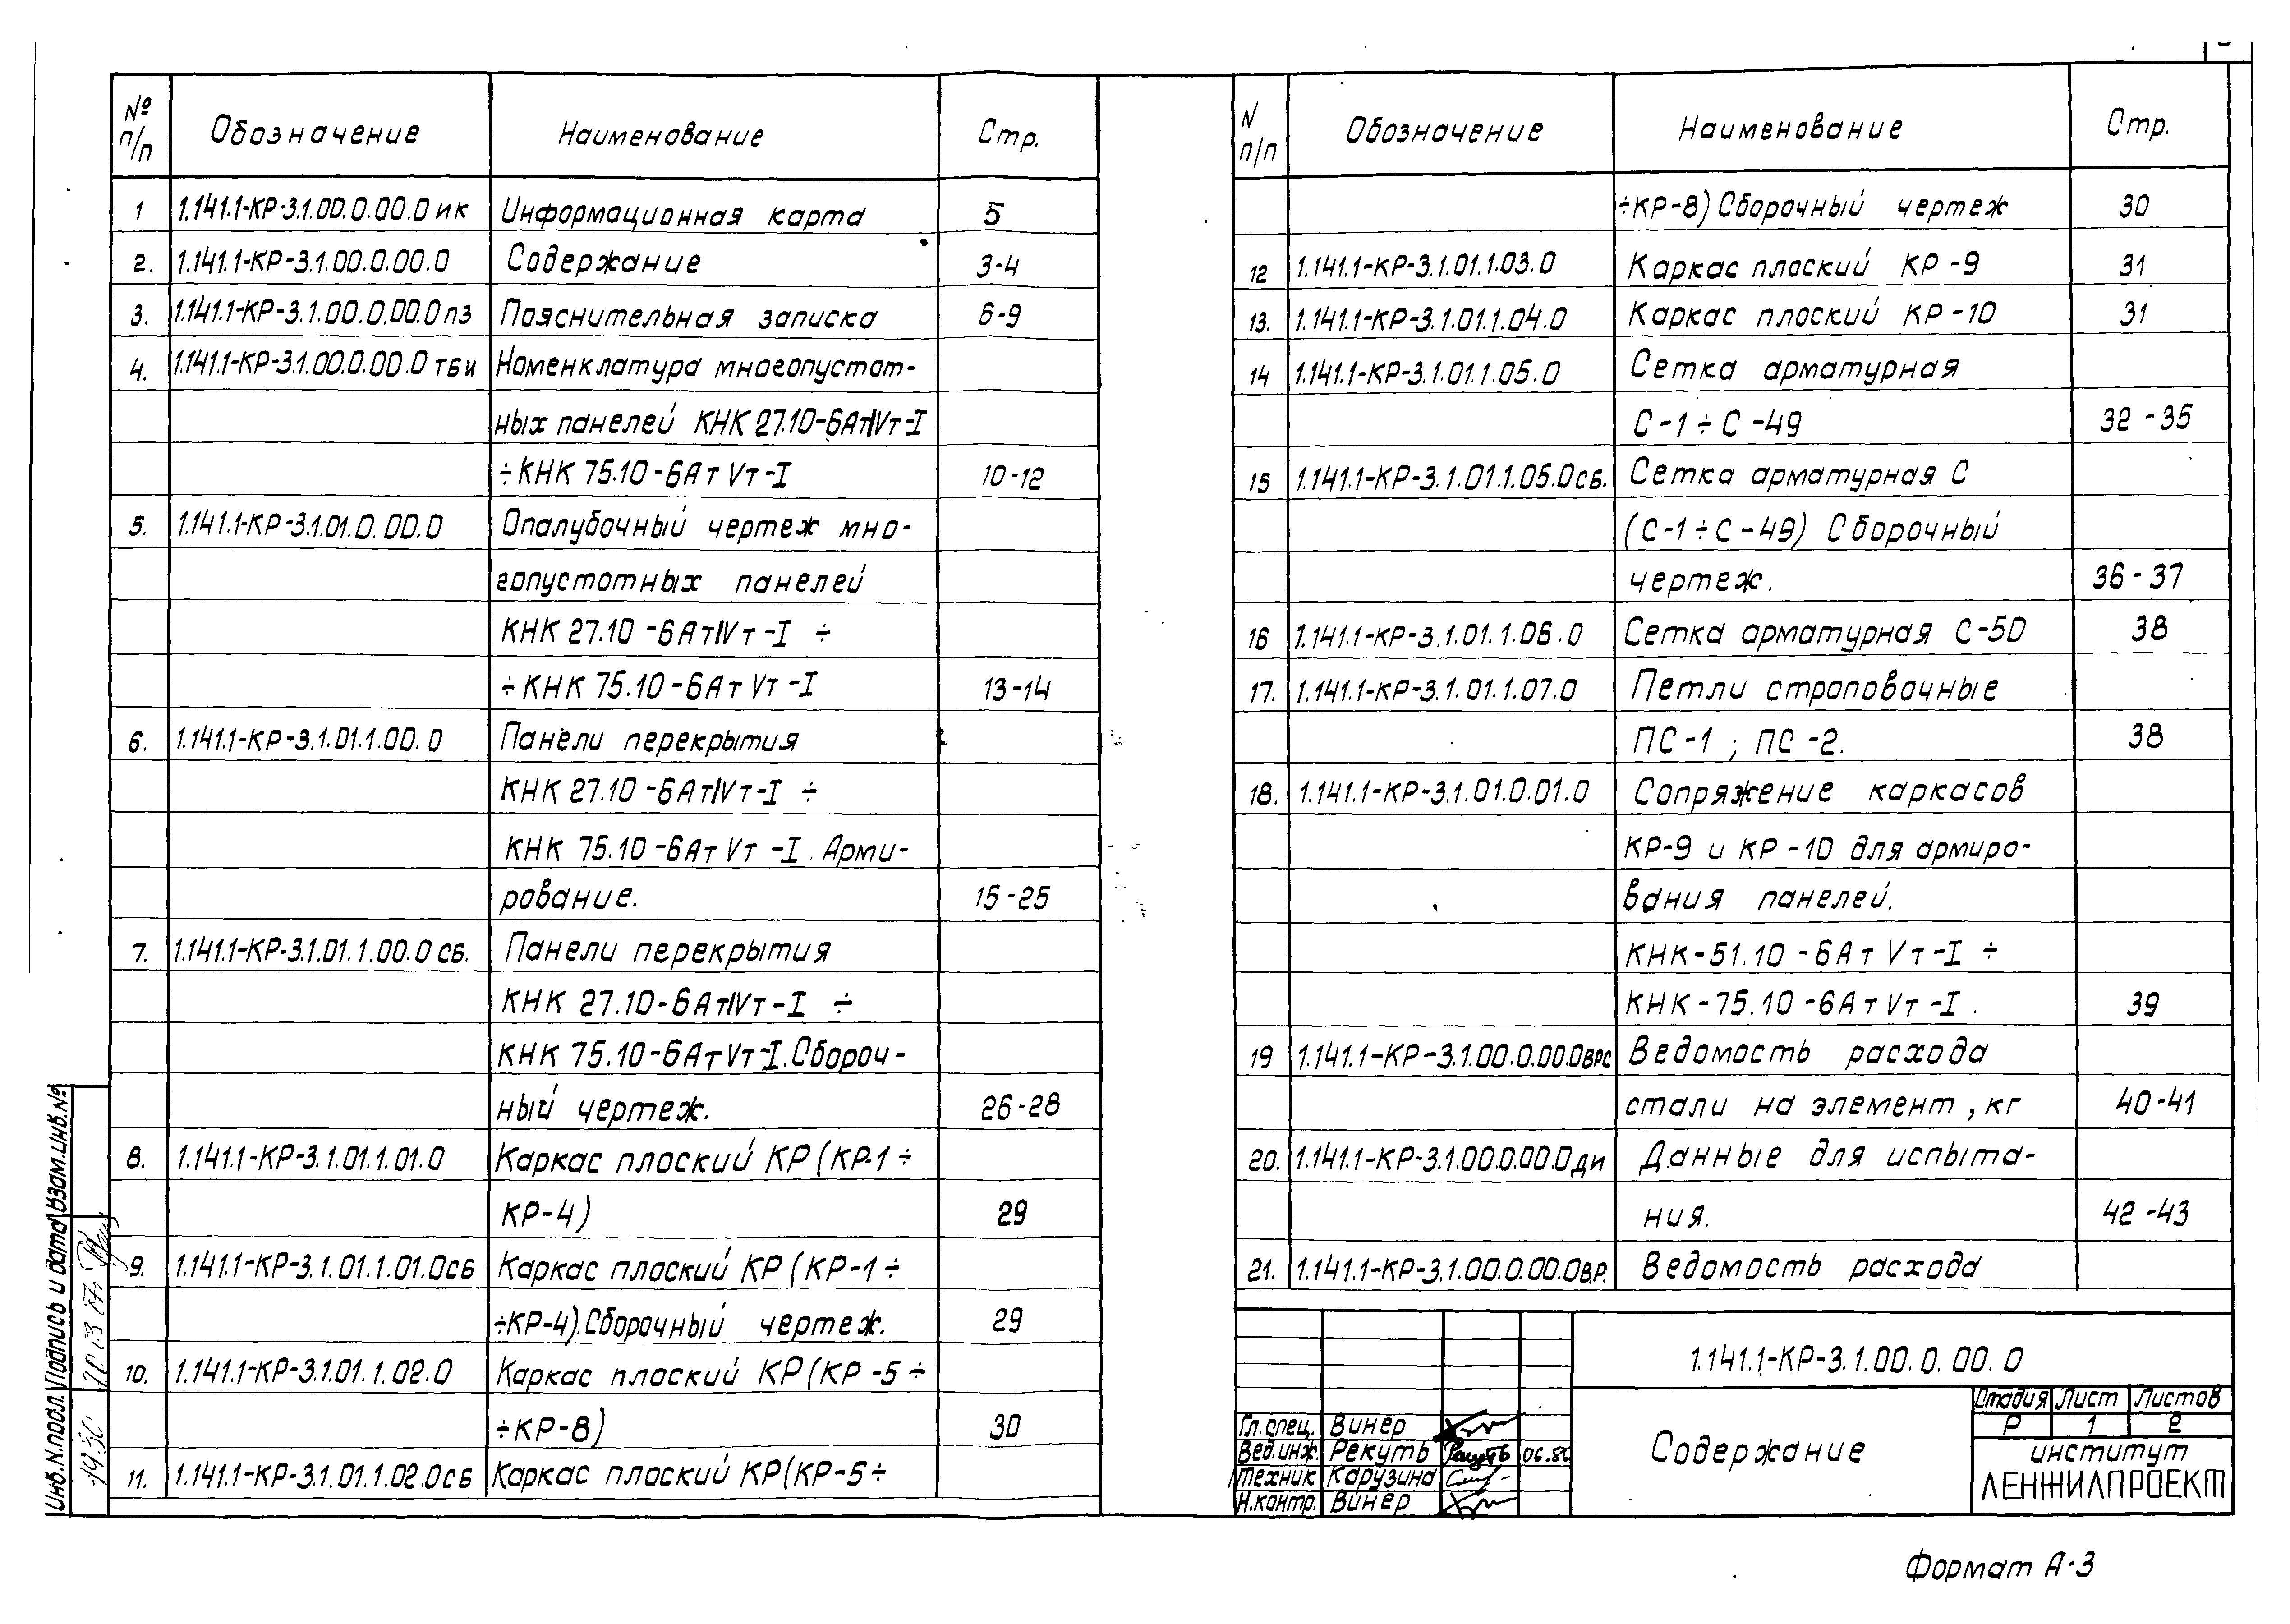 № п/п Обозначение Наименование Стр.
1 1.141.1-КР-3.1.00.0.00.0ик Информационная карта 5
2. 1.141.1-КР-3.1.00.0.00.0 Содержание 3-4
3. 1.141.1-КР-3.1.00.0.00.0пз Пояснительная записка 6-9
4. 1.141.1-КР-3.1.00.0.00.0тби Номенклатура многопустот-
ных панелей КНК 27.10-6АтIVт-I
÷КНК 75.10-6АтVт-I 10-12
5. 1.141.1-КР-3.1.01.0.00.0 Опалубочный чертеж мно-
гопустотных панелей
КНК 27.10-6АтIVт-I ÷
÷КНК 75.10-6АтVт-I 13-14
6. 1.141.1-КР-3.1.01.1.00.0 Панели перекрытия
КНК 27.10-6АтIVт-I ÷
КНК 75.10-6АтVт-I. Арми-
рование. 15-25
7. 1.141.1-КР-3.1.01.1.00.0сб. Панели перекрытия
КНК 27.10-6АтIVт-I ÷
КНК 75.10-6АтVт-I.Сбороч-
ный чертеж. 26-28
8. 1.141.1-КР-3.1.01.1.01.0 Каркас плоский КР(КР-1÷
КР-4) 29
9. 1.141.1-КР-3.1.01.1.01.0сб Каркас плоский КР(КР-1÷
÷КР-4).Сборочный чертеж. 29
10. 1.141.1-КР-3.1.01.1.02.0 Каркас плоский КР(КР-5÷
÷КР-8) 30
11. 1.141.1-КР-3.1.01.1.02.0сб Каркас плоский КР(КР-5÷
N п/п Обозначение Наименование Стр.
÷КР-8) Сборочный чертеж 30
12 1.141.1-КР-3.1.01.1.03.0 Каркас плоский КР-9 31
13. 1.141.1-КР-3.1.01.1.04.0 Каркас плоский КР-10 31
14 1.141.1-КР-3.1.01.1.05.0 Сетка арматурная
С-1÷С-49 32-35
15 1.141.1-КР-3.1.01.1.05.0сб. Сетка арматурная С
(С-1÷С-49) Сборочный
чертеж. 36-37
16 1.141.1-КР-3.1.01.1.06.0 Сетка арматурная С-50 38
17. 1.141.1-КР-3.1.01.1.07.0 Петли строповочные
ПС-1; ПС-2. 38
18. 1.141.1-КР-3.1.01.0.01.0 Сопряжение каркасов
КР-9 и КР-10 для армиро-
вания панелей.
КНК-51.10-6АтVт-I ÷
КНК-75.10-6АтVт-I. 39
19 1.141.1-КР-3.1.00.0.00.0врс Ведомость расхода
стали на элемент, кг 40-41
20. 1.141.1-КР-3.1.00.0.00.0ди Данные для испыта-
ния. 42-43
21. 1.141.1-КР-3.1.00.0.00.0в.р. Ведомость расхода
1.141.1-КР-3.1.00.0.00.0
Стадия Лист Листов
Р 1 2
Содержание
институт
ЛЕНЖИЛПРОЕКТ
Гл.спец. Винер
Вед.инж. Рекуть 06.86
Техник Карузина
Н.контр. Винер
Инв.N.подл. Подпись и дата Взам.инв.№
Формат А-3